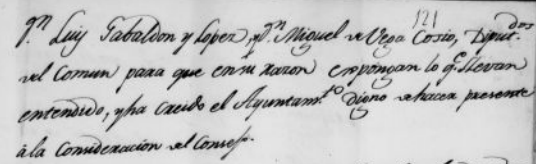 121
Dn Luis Tabaldon y Lopez, y Dn Miguel de Vega Cosio, Diputdos
del Comun para que en su razon expongan lo qe. llevan
entendido, y ha creido el Ayuntamto. digno de hacer presente
à la Consideracion del Consejo.